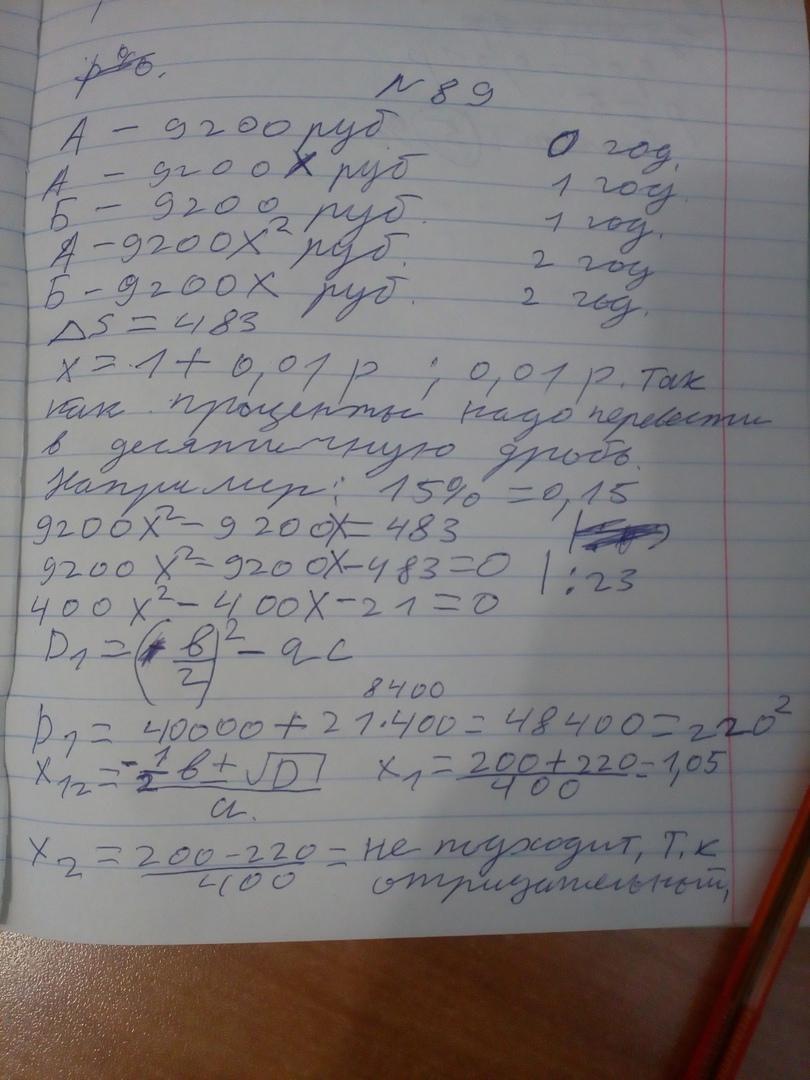 р%.
N 89
А - 9200 руб 0 год.
А - 9200х руб 1 год
Б - 9200 руб. 1 год.
А - 9200х² руб. 2 год
Б - 9200х руб. 2 год.
ΔS = 483
х = 1 + 0,01р ; 0,01р. так
как проценты надо перевести
в десятичную дробь.
Например: 15% = 0,15
9200х² - 9200х = 483
9200х² - 9200х - 483 = 0 | :23
400х² - 400х - 21 = 0
D₁ = (в/2)² - ас
8400
D₁ = 40000 + 21·400 = 48400 = 220²
х₁₂ = (-1/2 в ± √D)/а. х₁ = (200 + 220)/400 = 1,05
х₂ = (200 - 220)/400 = не подходит, т.к
отрицательный,